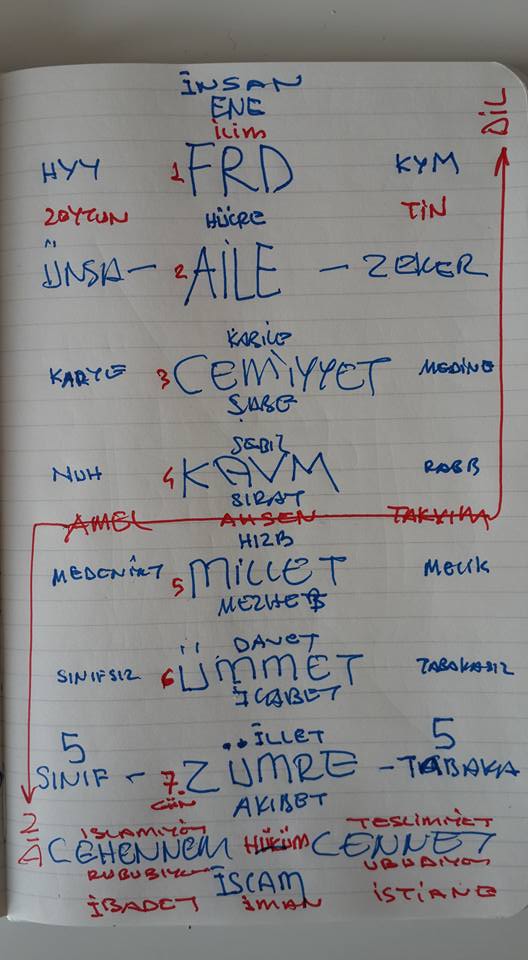 İNSAN
ENE
İLİM
DİL
HYY 1 FRD KYM
ZEYTUN HÜCRE TİN
ÜNSA — 2 AİLE — ZEKER
KABİLE
KARYE 3 CEMİYYET MEDİNE
ŞABE
SEBİL
NUH 4 KAVM RABB
SIRAT
AMEL AHSEN TAKVİM
HIZB
MEDENİYET 5 MİLLET MELİK
MEZHEB
DAVET
SINIFSIZ 6 ÜMMET TABAKASIZ
İCABET
5 İLLET 5
SINIF - 7. ZÜMRE - TABAKA
GÜN AKIBET
İSLAMİYET TESLİMİYET
CEHENNEM HÜKÜM CENNET
RUBUBİYET İSLAM UBUDİYET
İBADET İMAN İSTİANE